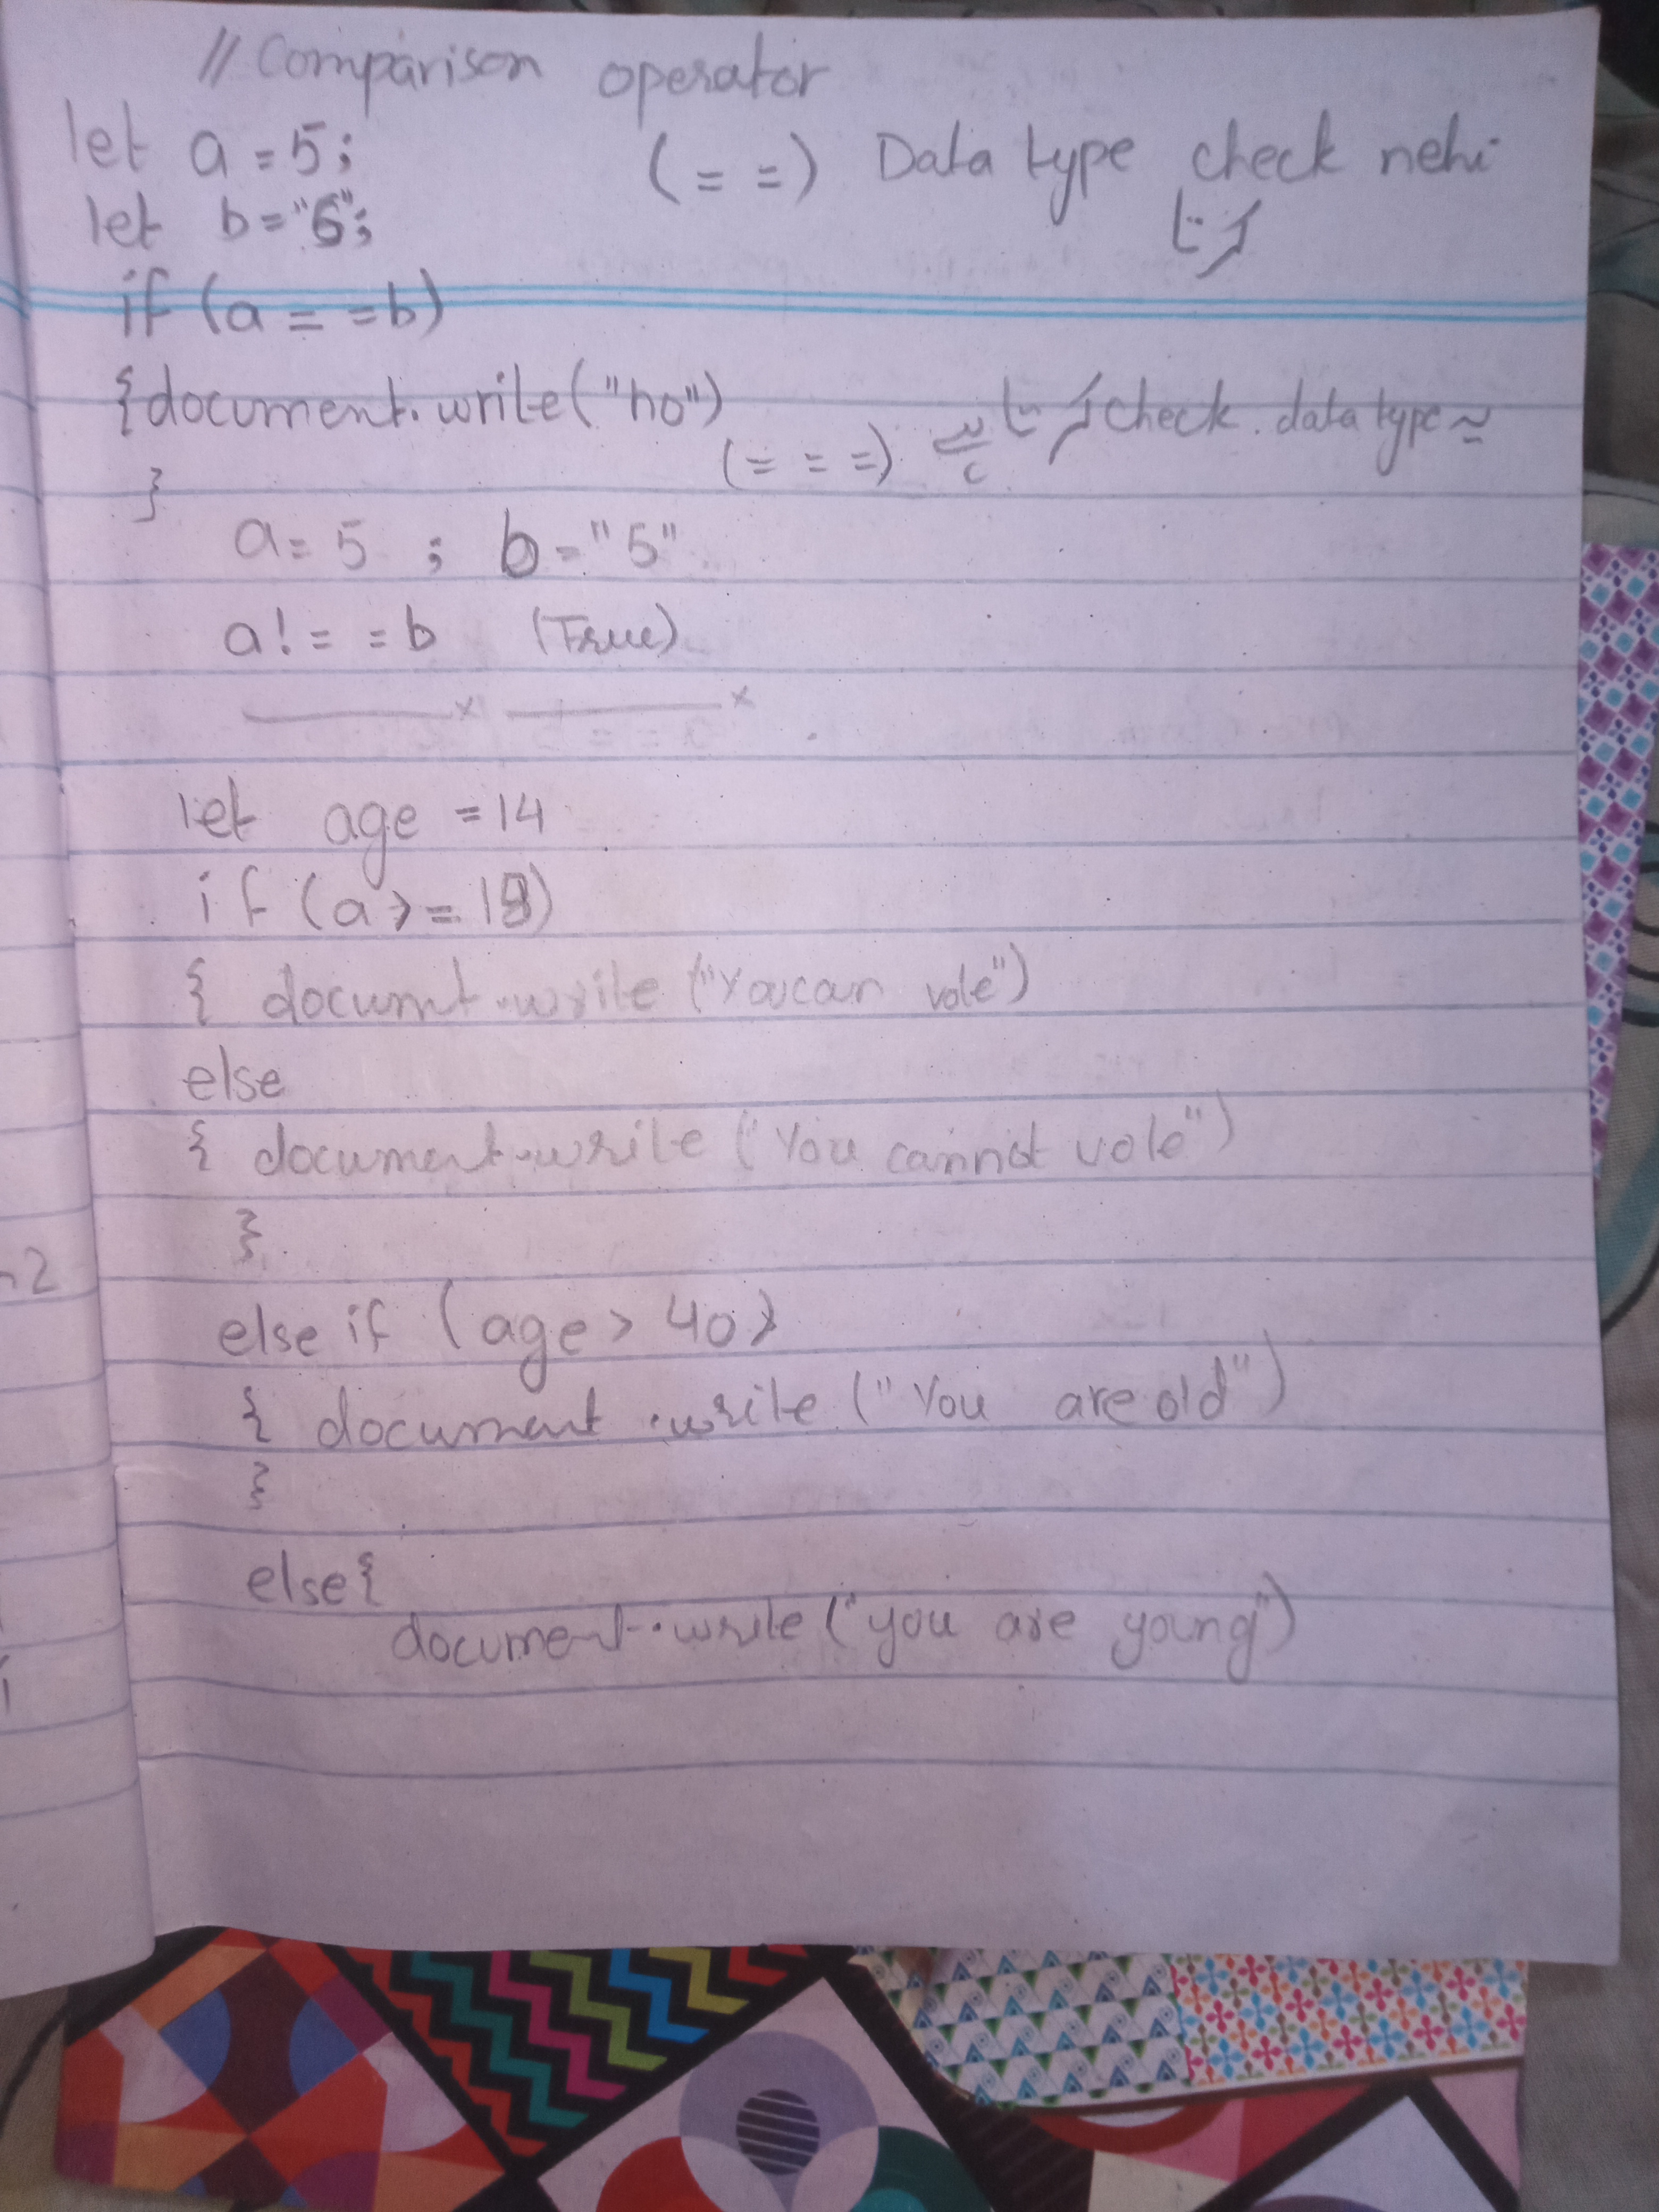 // Comparison operator
let a = 5;
(= =) Data type check nehi
کرتا
let b = "5";
if (a = = b)
{document.write("ho")
(= = =) check data type کرتا ہے
}
a = 5 ; b = "5"
a! = = b (True)
let age = 14
if (a >= 18)
{ documnt.write ("You can vote")
else
{ document.write ("You cannot vote")
}
else if (age > 40)
{ document.write ("You are old")
}
else{
document.write ("you are young")
2